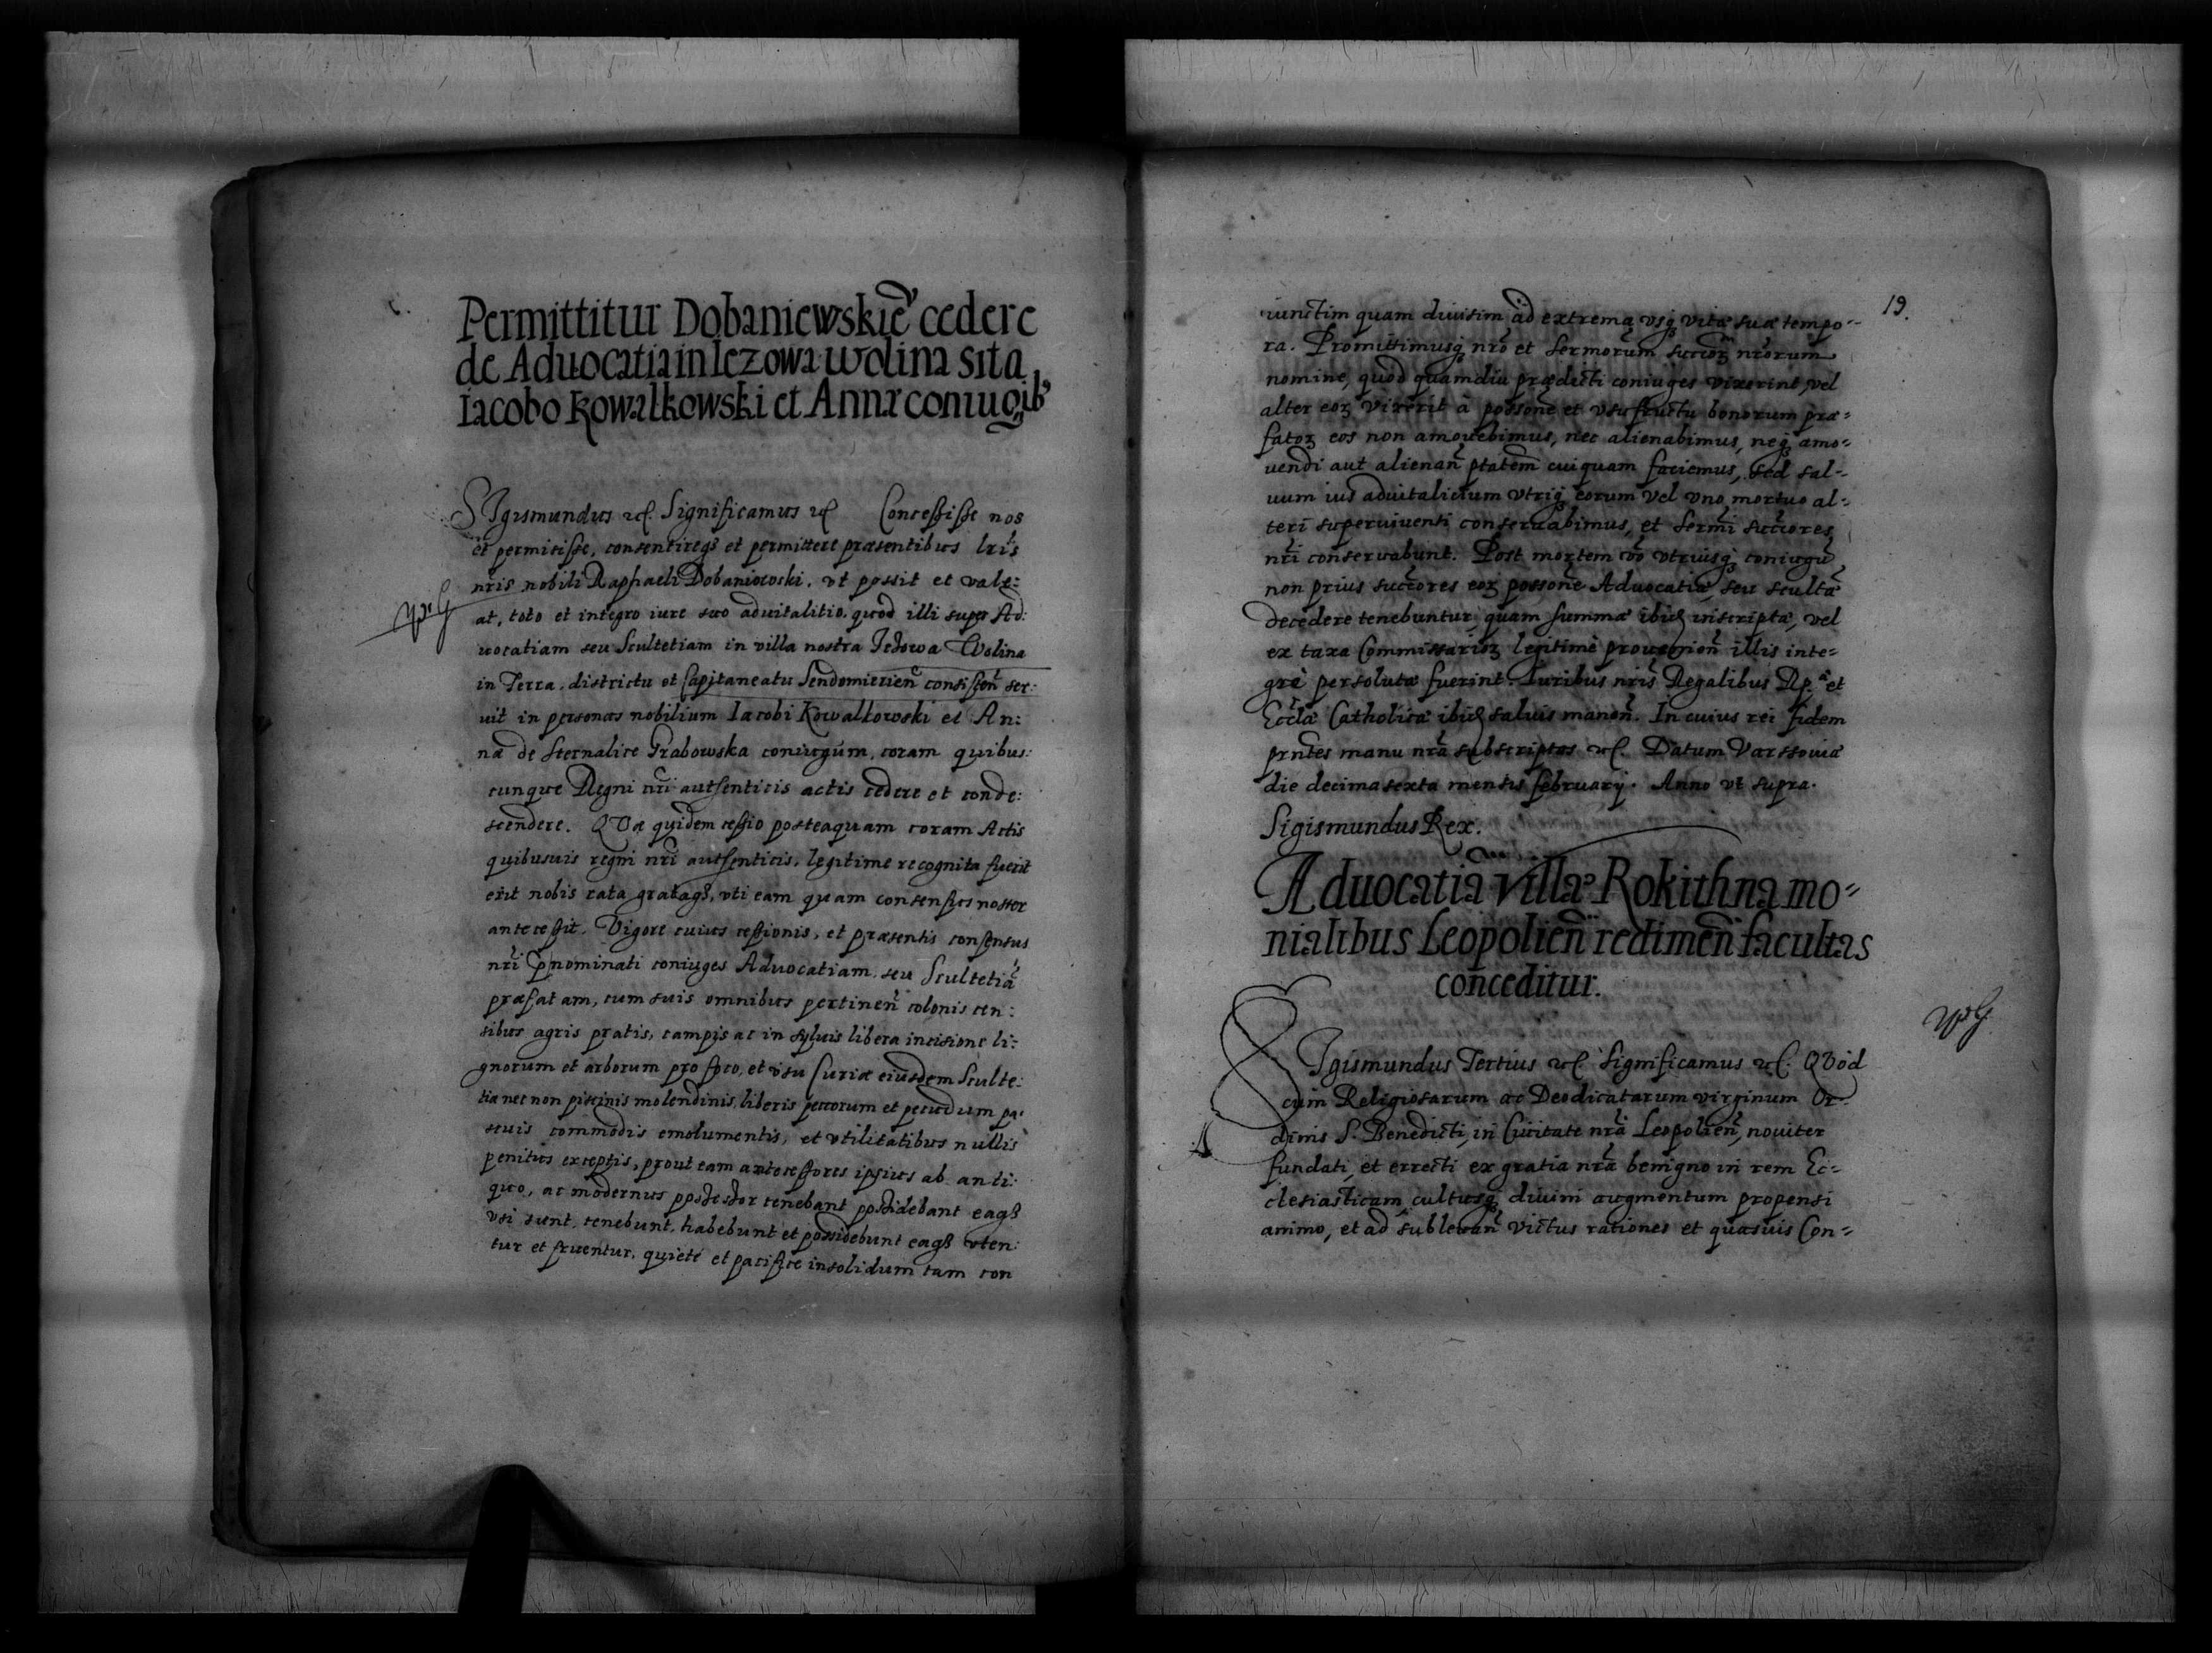 Permittitur Dobaniewskie᷑ cedere
de Aduocatia in Iezowa wolina sita
Iacobo Kowalkowski et Annæ coniugib9
SIgismundus etc. Significamus etc. Concessisse nos
et permisisse, consentireq3 et permittere præsentibus lris
nris nobili Raphaeli Dobaniowski, vt possit et vale:
at, toto et integro iure suo aduitalitio, quod illi super Ad:
uocatiam seu Scultetiam in villa nostra Jezowa Wolina
in Terra, districtu et Capitaneatu Sendomirien̄ consisten̄ ser:
uit in personas nobilium Iacobi Kowalkowski et An:
næ de Sternalice Grabowska coniugum, coram quibus:
cunque Regni nri authenticis actis cedere et conde:
scendere. QVæ quidem cessio posteaquam coram Actis
quibusuis regni nri authenticis, legitime recognita fuerit
erit nobis rata grataq3, vti eam quam consensus noster
antecessit. Vigore cuius cessionis, et præsentis consensus
nri p̄nominati coniuges Aduocatiam, seu Scultetiā
præfatam, cum suis omnibus pertinen̄ colonis cen:
sibus agris pratis, campis ac in syluis libera incisione li:
gnorum et arborum pro foco, et vsu Curiæ eiusdem Sculte:
tiæ nec non piscinis molendinis, liberis pecorum et pecudum pa:
scuis commodis emolumentis, et vtilitatibus nullis
penitus exceptis, prout eam antecessores ipsius ab anti:
quo, ac modernus possessor tenebant possidebant eaq3
vsi sunt, tenebunt, habebunt et possidebunt eaq3 vten:
tur et fruentur, quietè et pacifice insolidum tam con
19.
iunctim quam diuisim ad extrema vsq3 vitæ suæ tempo=
ra. Promittimusq3 nro et Sermorum succorū nrorum
nomine, quod quamdiu prædicti coniuges vixerint, vel
alter eorꝫ vixerit à possone et vsufructu bonorum præ=
fatorꝫ eos non amouebimus, nec alienabimus, neq3 amo=
uendi aut alienan̄ ptatem cuiquam faciemus, sed sal=
uum ius aduitalitium vtriq3 eorum vel vno mortuo al=
teri superuiuenti conseruabimus, et Sermi succores
nri conseruabunt. Post mortem vō vtriusq3 coniugū
non prius succores eorꝫ possone Aduocatiæ, seu scultæ
decedere tenebuntur, quam summæ ibid inscriptæ, vel
ex taxa Commissariorꝫ legitime prouenien̄ illis inte=
grè persolutæ fuerint. Iuribus nris Regalibus Rp. et
Ecclæ Catholicæ ibid saluis manen̄. In cuius rei fidem
prntes manu nra subscriptas etc. Datum Varssouiæ
die decima sexta mensis february. Anno vt supra.
Sigismundus Rex.
Aduocatiā villæ Rokithna mo=
nialibus Leopolien̄ redimen̄ facultas
conceditur.
SIgismundus Tertius etc. Significamus etc. QVod
cum Religiosarum ac Deodicatarum virginum Or=
dinis S. Benedicti, in Ciuitate nra Leopolien̄, nouiter
fundati, et errecti ex gratia nra benigno in rem Ec=
clesiasticam, cultusq3 diuini augmentum propensi
animo, et ad subleuan̄ victus rationes et quasuis Con=